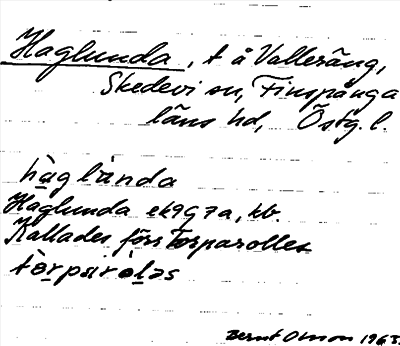 Haglunda, t å Vallersäng,
Skedevi sn, Finspånga
läns hd, Östg. l.
hàglùnda
Haglunda ek 9 G 7 a, kb.
Kallades förr Torparolles
tòrparòləs
Bernt Olsson 1963.